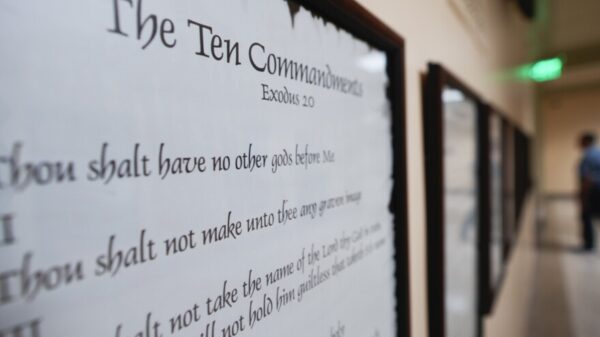 The Ten Commandments
Exodus 20
Thou shalt have no other gods before Me
II
Thou shalt not make unto thee any graven image
III
shalt not take the name of the Lord thy God in vain
will not hold him guiltless that